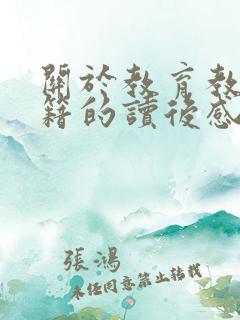 關於教育教
籍的讀後感
張鴻
未經同意禁止轉載